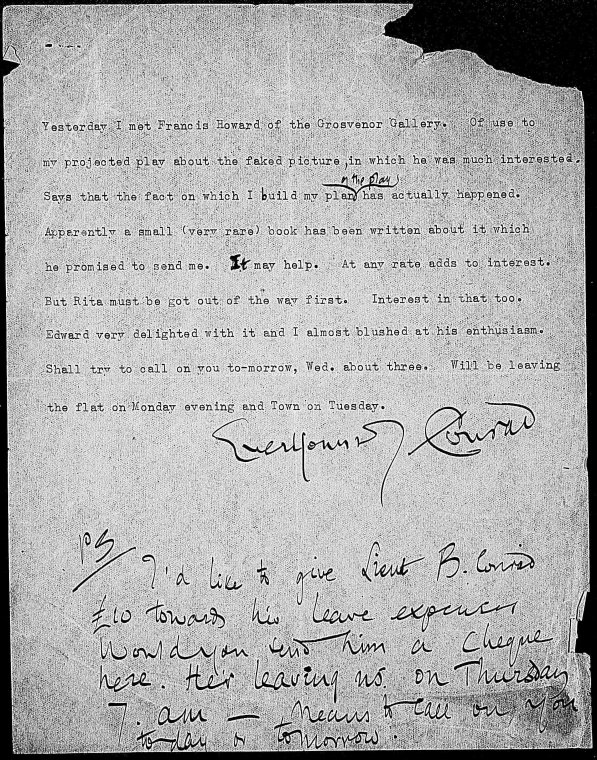 Yesterday I met Francis Howard of the Grosvenor Gallery. Of use to
my projected play about the faked picture, in which he was much interested.
of the play
Says that the fact on which I build my plan has actually happened.
Apparently a small (very rare) book has been written about it which
he promised to send me. It may help. At any rate adds to interest.
But Rita must be got out of the way first. Interest in that too.
Edward very delighted with it and I almost blushed at his enthusiasm.
Shall try to call on you to-morrow, Wed. about three. Will be leaving
the flat on Monday evening and Town on Tuesday.
Ever Yours J Conrad
PS
I'd like to give Lieut B. Conrad
£10 towards his leave expenses
Would you send him a cheque
here. He's leaving us on Thursday
7. am — means to call on you
to-day or tomorrow.